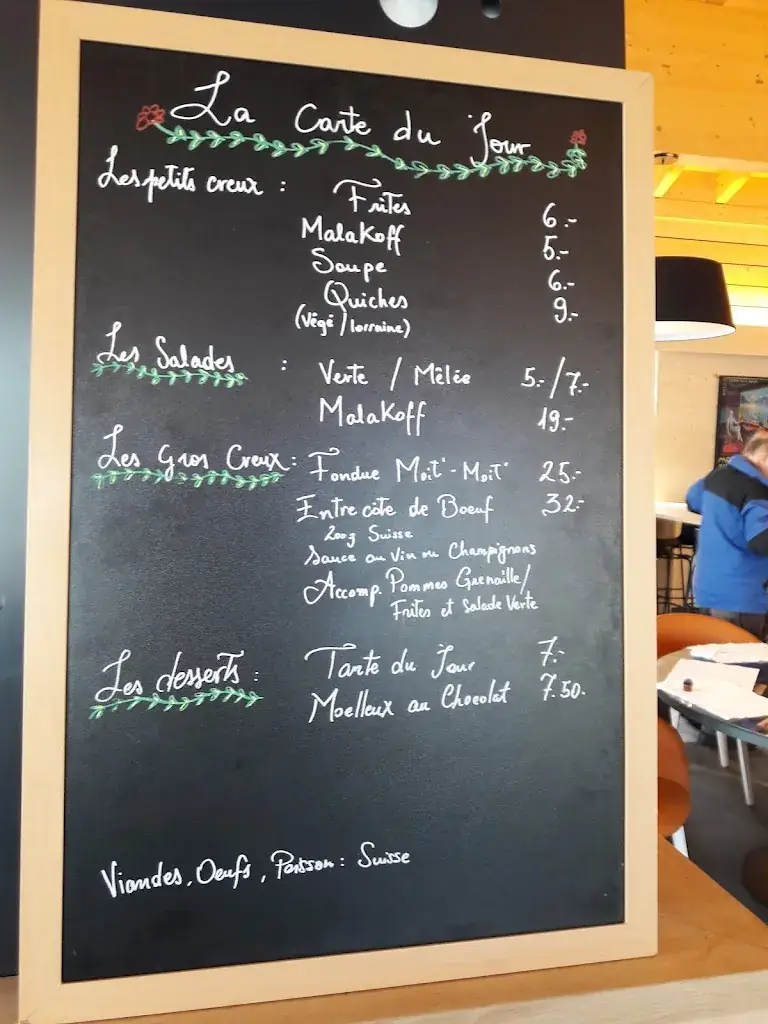 La Carte du Jour
Les petits creux : Frites 6.-
Malakoff 5.-
Soupe 6.-
Quiches 9.-
(Végé / lorraine)
Les Salades : Verte / Mêlée 5.- / 7.-
Malakoff 19.-
Les Gros Creux : Fondue Moit'-Moit' 25.-
Entre côte de Boeuf 32.-
200g Suisse
Sauce au Vin ou Champignons
Accomp. Pommes Grenaille /
Frites et Salade Verte
Les desserts : Tarte du Jour 7.-
Moelleux au Chocolat 7.50.-
Viandes, Oeufs, Poisson : Suisse